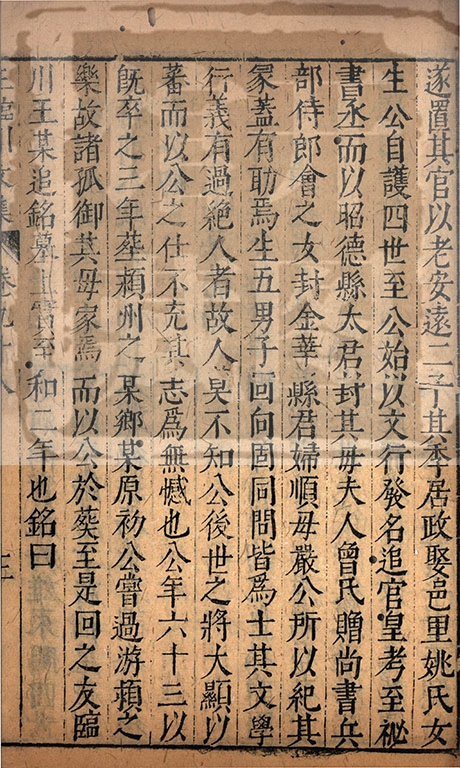 遂置其官以老安遠二子其季居政娶邑里姚氏女
生公自護四世至公始以文行發名追官皇考至祕
書丞而以昭德縣太君封其母夫人曾氏贈尚書兵
部侍郎會之女封金華縣君婦順母嚴公所以紀其
家蓋有助焉生五男子回向固同問皆為士其文學
行義有過絶人者故人莫不知公後世之將大顯以
蕃而以公之仕不充其志為無憾也公年六十三以
旣卒之三年葬頴州之某鄉某原初公嘗過游頴之
樂故諸孤御其母家焉而以公於葬至是回之友臨
川王某追銘墓上實至和二年也銘曰
王臨川文集 卷九十八